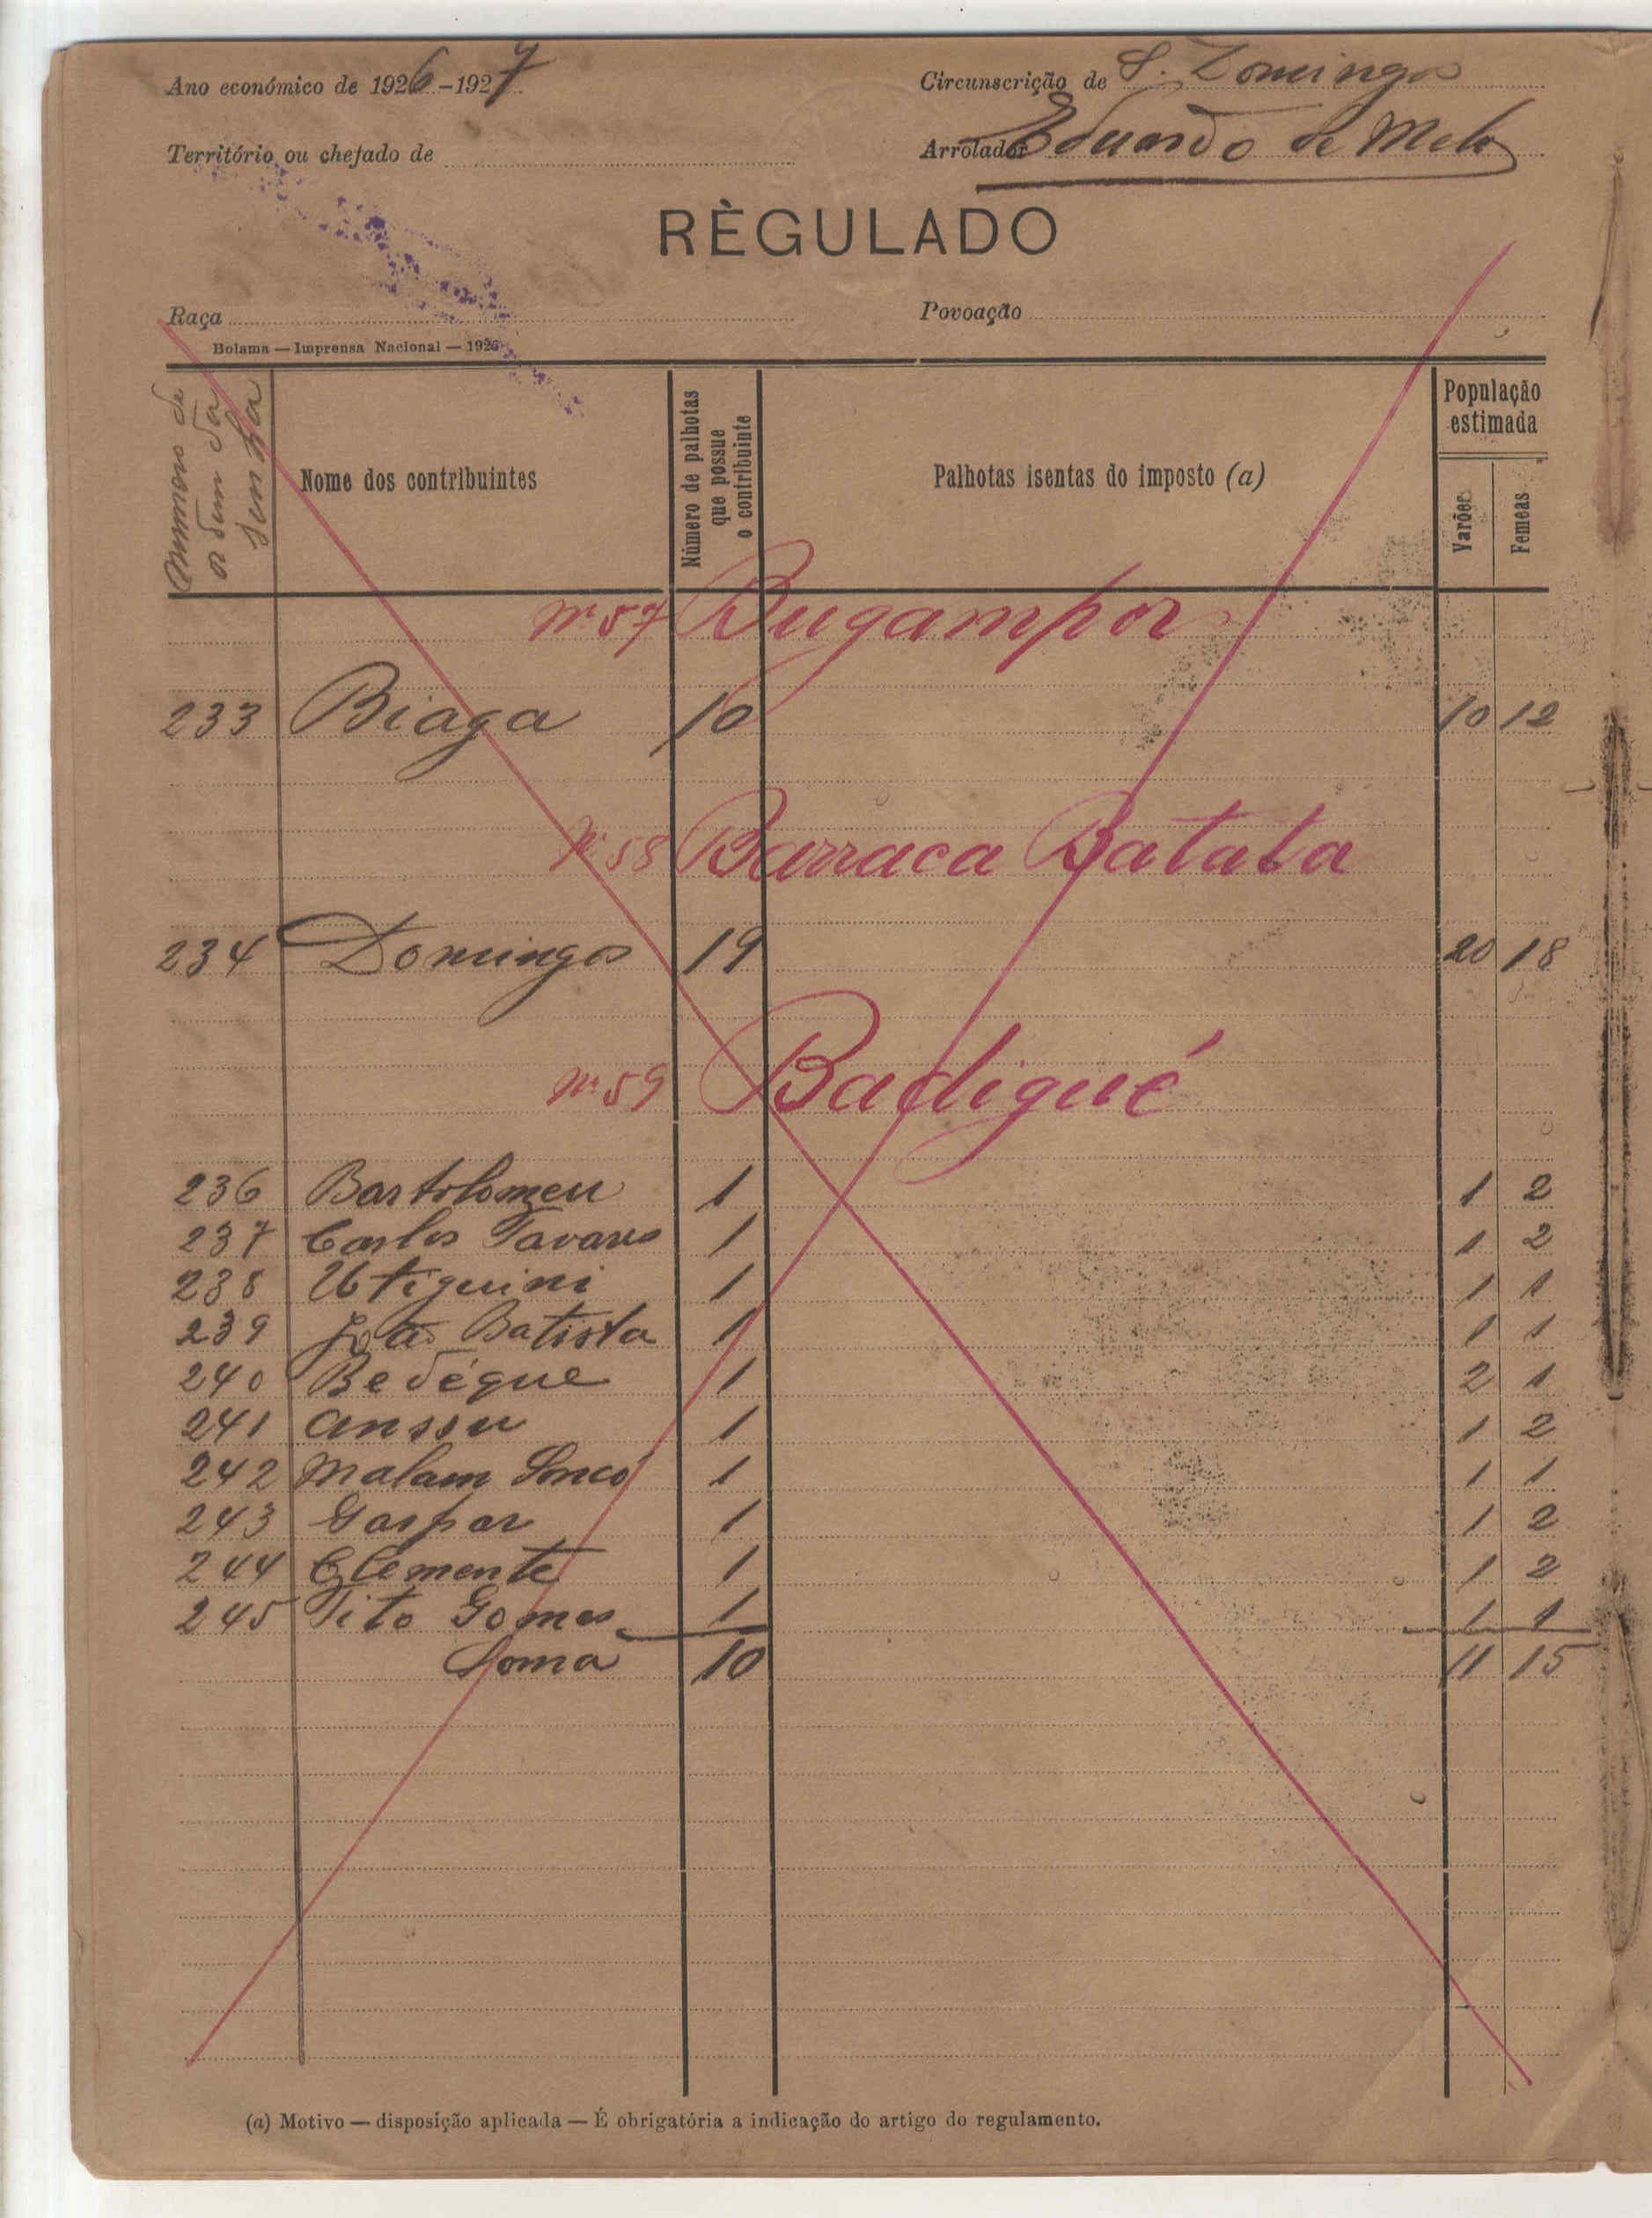 Ano económico de 1926-1927
Circunscrição de S. Domingos
Território ou chefado de
Arrolador Eduardo de Melo
RÈGULADO
Raça
Povoação
Bolama — Imprensa Nacional — 1926
Numero de ordem da senha
Nome dos contribuintes
Número de palhotas que possue o contribuinte
Palhotas isentas do imposto (a)
População estimada
Varões
Femeas
Nº 57 Bugampor
233 Biaga 10 10 12
Nº 58 Barraca Batata
234 Domingos 19 20 18
Nº 59 Badigué
236 Bartolomeu 1 1 2
237 Carlos Tavares 1 1 2
238 Utiguini 1 1 1
239 João Batista 1 1 1
240 Bedégue 1 2 1
241 Anssu 1 1 2
242 Malam Soncó 1 1 1
243 Gaspar 1 1 2
244 Clemente 1 1 2
245 Tito Gomes 1 1 1
Soma 10 11 15
(a) Motivo — disposição aplicada — É obrigatória a indicação do artigo do regulamento.